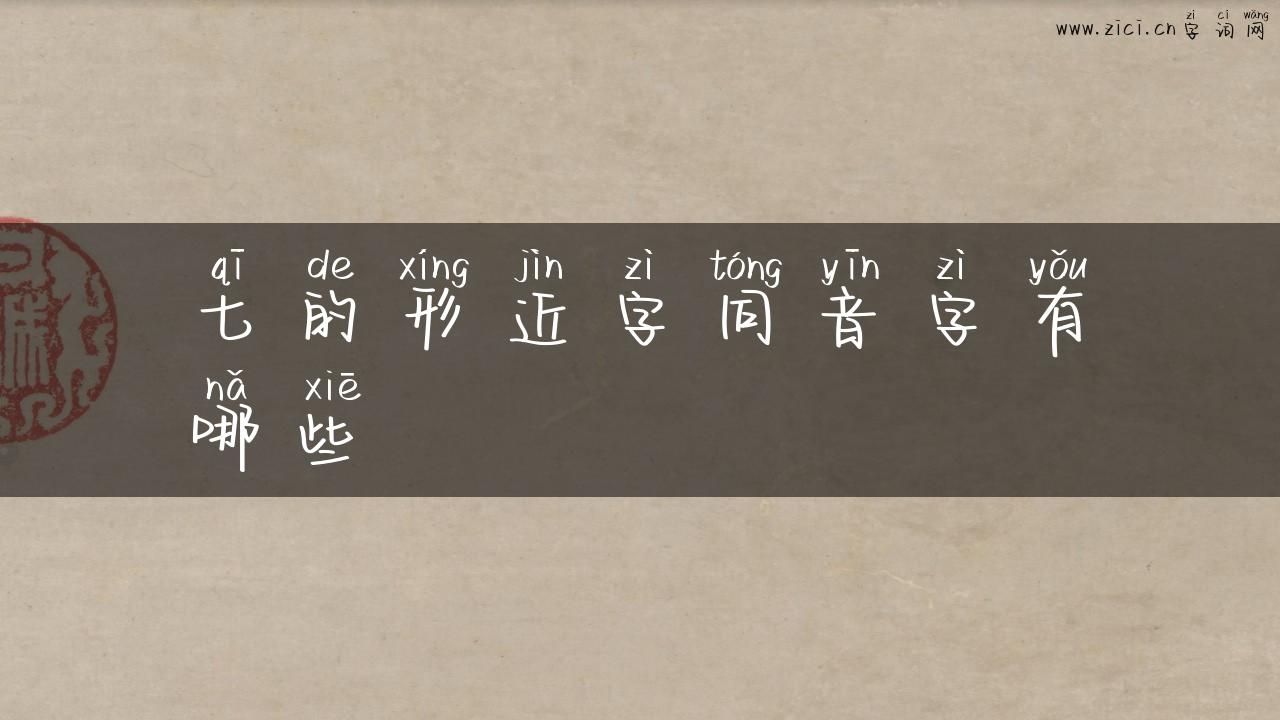 zì cí wǎng
www.zici.cn 字词网
qī de xíng jìn zì tóng yīn zì yǒu
七的形近字同音字有
nǎ xiē
哪些